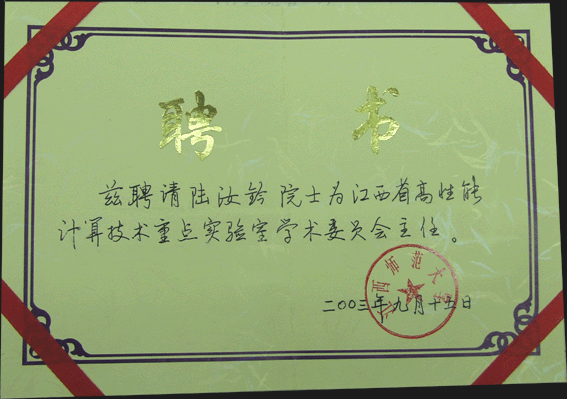 聘书
兹聘请陆汝钤院士为江西省高性能
计算技术重点实验室学术委员会主任。
江西师范大学
二00三年九月十五日